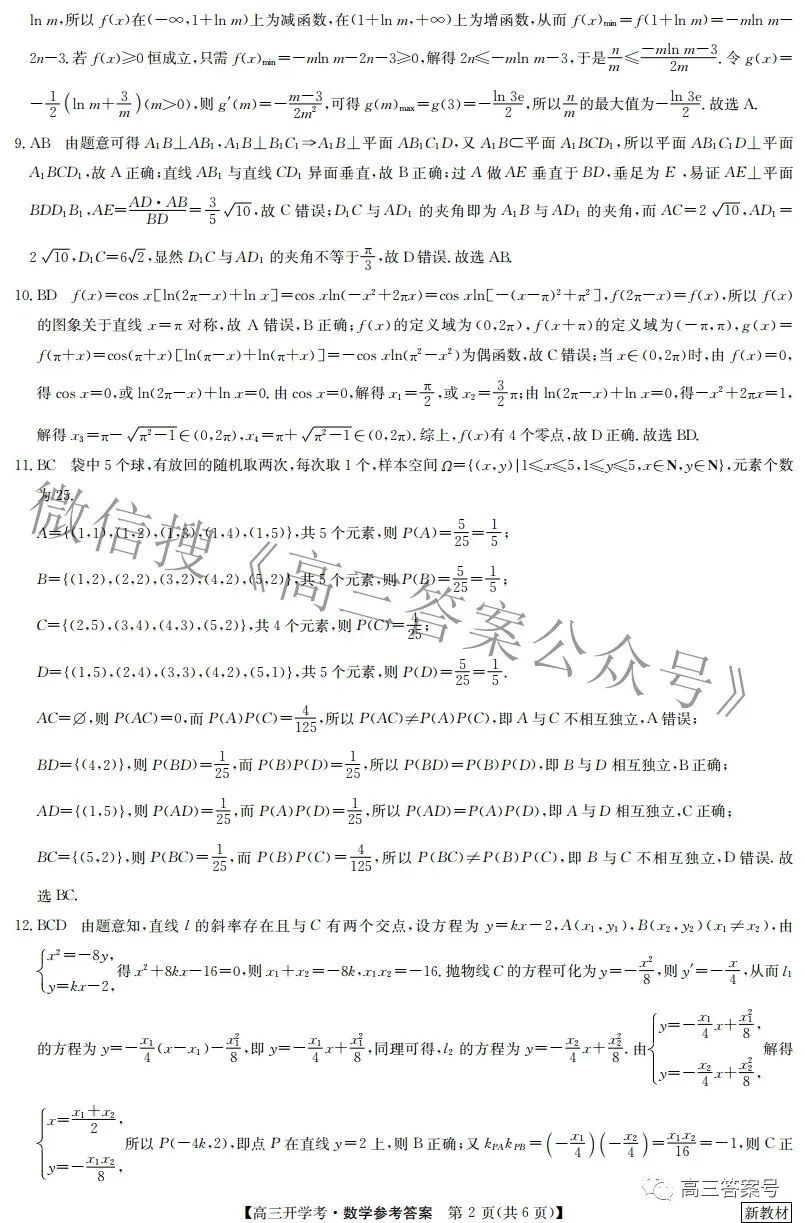 ln m,所以 f(x)在(-∞,1+ln m)上为减函数,在(1+ln m,+∞)上为增函数,从而 f(x)min=f(1+ln m)=-mln m-
2n-3.若 f(x)≥0 恒成立,只需 f(x)min=-mln m-2n-3≥0,解得 2n≤-mln m-3,于是 n/m ≤ (-mln m-3)/(2m). 令 g(x)=
-1/2(ln m+3/m)(m>0),则 g′(m)=-(m-3)/(2m²),可得 g(m)max=g(3)=-(ln 3e)/2,所以 n/m 的最大值为-(ln 3e)/2. 故选 A.
9. AB 由题意可得 A₁B⊥AB₁,A₁B⊥B₁C₁⇒A₁B⊥平面 AB₁C₁D,又 A₁B⊂平面 A₁BCD₁,所以平面 AB₁C₁D⊥平面
A₁BCD₁,故 A 正确;直线 AB₁ 与直线 CD₁ 异面垂直,故 B 正确;过 A 做 AE 垂直于 BD,垂足为 E ,易证 AE⊥平面
BDD₁B₁,AE=(AD·AB)/BD=3/5√10,故 C 错误;D₁C 与 AD₁ 的夹角即为 A₁B 与 AD₁ 的夹角,而 AC=2√10,AD₁=
2√10,D₁C=6√2,显然 D₁C 与 AD₁ 的夹角不等于 π/3,故 D 错误. 故选 AB.
10. BD f(x)=cos x[ln(2π-x)+ln x]=cos xln(-x²+2πx)=cos xln[-(x-π)²+π²],f(2π-x)=f(x),所以 f(x)
的图象关于直线 x=π 对称,故 A 错误,B 正确;f(x)的定义域为(0,2π),f(x+π)的定义域为(-π,π),g(x)=
f(π+x)=cos(π+x)[ln(π-x)+ln(π+x)]=-cos xln(π²-x²)为偶函数,故 C 错误;当 x∈(0,2π)时,由 f(x)=0,
得 cos x=0,或 ln(2π-x)+ln x=0. 由 cos x=0,解得 x₁=π/2,或 x₂=3/2π;由 ln(2π-x)+ln x=0,得-x²+2πx=1,
解得 x₃=π-√(π²-1)∈(0,2π),x₄=π+√(π²-1)∈(0,2π). 综上,f(x)有 4 个零点,故 D 正确. 故选 BD.
11. BC 袋中 5 个球,有放回的随机取两次,每次取 1 个,样本空间 Ω={(x,y)|1≤x≤5,1≤y≤5,x∈N,y∈N},元素个数
为 25.
A={(1,1),(1,2),(1,3),(1,4),(1,5)},共 5 个元素,则 P(A)=5/25=1/5;
B={(1,2),(2,2),(3,2),(4,2),(5,2)},共 5 个元素,则 P(B)=5/25=1/5;
C={(2,5),(3,4),(4,3),(5,2)},共 4 个元素,则 P(C)=4/25;
D={(1,5),(2,4),(3,3),(4,2),(5,1)},共 5 个元素,则 P(D)=5/25=1/5.
AC=∅,则 P(AC)=0,而 P(A)P(C)=4/125,所以 P(AC)≠P(A)P(C),即 A 与 C 不相互独立,A 错误;
BD={(4,2)},则 P(BD)=1/25,而 P(B)P(D)=1/25,所以 P(BD)=P(B)P(D),即 B 与 D 相互独立,B 正确;
AD={(1,5)},则 P(AD)=1/25,而 P(A)P(D)=1/25,所以 P(AD)=P(A)P(D),即 A 与 D 相互独立,C 正确;
BC={(5,2)},则 P(BC)=1/25,而 P(B)P(C)=4/125,所以 P(BC)≠P(B)P(C),即 B 与 C 不相互独立,D 错误. 故
选 BC.
12. BCD 由题意知,直线 l 的斜率存在且与 C 有两个交点,设方程为 y=kx-2,A(x₁,y₁),B(x₂,y₂)(x₁≠x₂),由
{x²=-8y, y=kx-2, 得 x²+8kx-16=0,则 x₁+x₂=-8k,x₁x₂=-16. 抛物线 C 的方程可化为 y=-x²/8,则 y′=-x/4,从而 l₁
的方程为 y=-x₁/4(x-x₁)-x₁²/8,即 y=-x₁/4x+x₁²/8,同理可得,l₂ 的方程为 y=-x₂/4x+x₂²/8. 由{y=-x₁/4x+x₁²/8, y=-x₂/4x+x₂²/8, 解得
{x=(x₁+x₂)/2, y=-x₁x₂/8, 所以 P(-4k,2),即点 P 在直线 y=2 上,则 B 正确;又 kPAkPB=(-x₁/4)(-x₂/4)=x₁x₂/16=-1,则 C 正
微信搜《高三答案公众号》
高三答案号
【高三开学考·数学参考答案 第 2 页(共 6 页)】
新教材